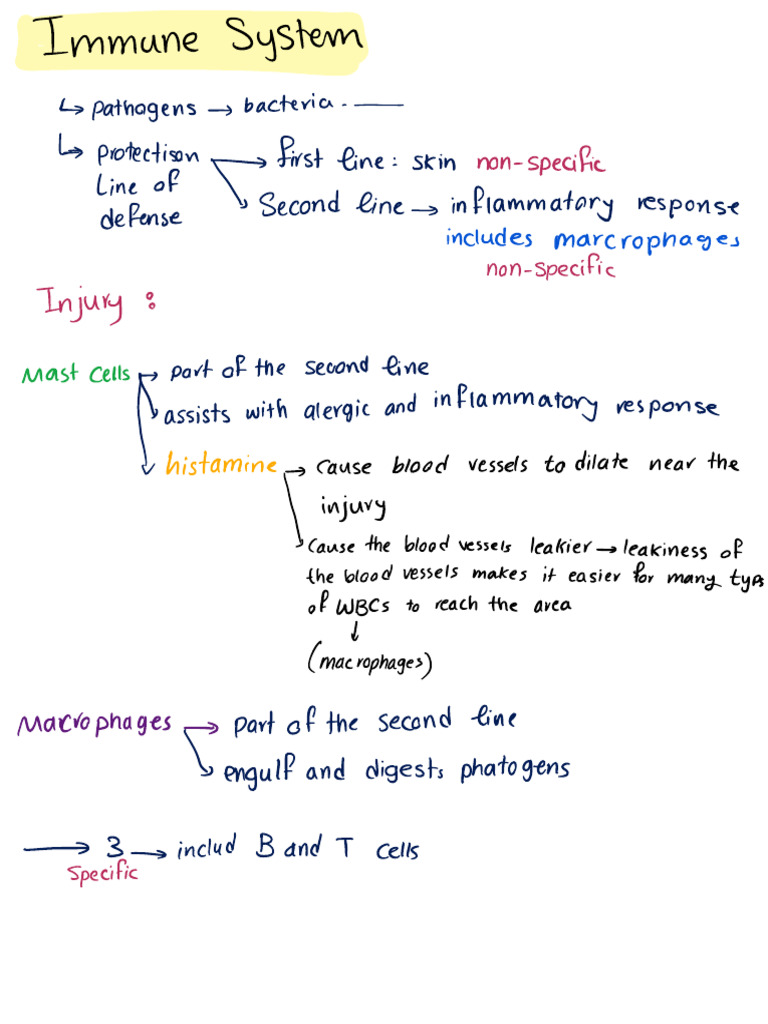 Immune System
↳ pathogens → bacteria. ——
↳ protectison → first line: skin non-specific
Line of → Second line → inflammatory response
defense
includes marcrophages
non-specific
Injury :
Mast cells → part of the second line
↳ assists with alergic and inflammatory response
↳ histamine → cause blood vessels to dilate near the
injury
↳ Cause the blood vessels leakier → leakiness of
the blood vessels makes it easier for many typs
of WBCs to reach the area
↓
(macrophages)
Macrophages → part of the second line
↳ engulf and digests phatogens
→ 3 → includ B and T cells
Specific